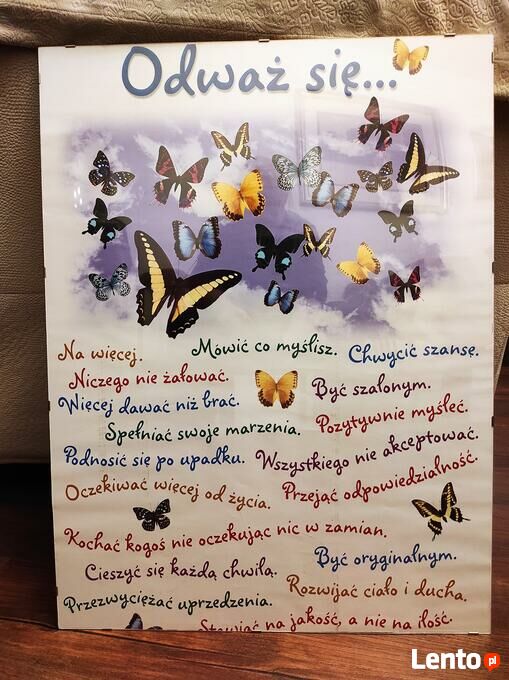 Odważ się...
Na więcej.
Mówić co myślisz.
Chwycić szansę.
Niczego nie żałować.
Być szalonym.
Więcej dawać niż brać.
Pozytywnie myśleć.
Spełniać swoje marzenia.
Wszystkiego nie akceptować.
Podnosić się po upadku.
Przejąć odpowiedzialność.
Oczekiwać więcej od życia.
Kochać kogoś nie oczekując nic w zamian.
Być oryginalnym.
Cieszyć się każdą chwilą.
Rozwijać ciało i ducha.
Przezwyciężać uprzedzenia.
Stawiać na jakość, a nie na ilość.
Lento.pl